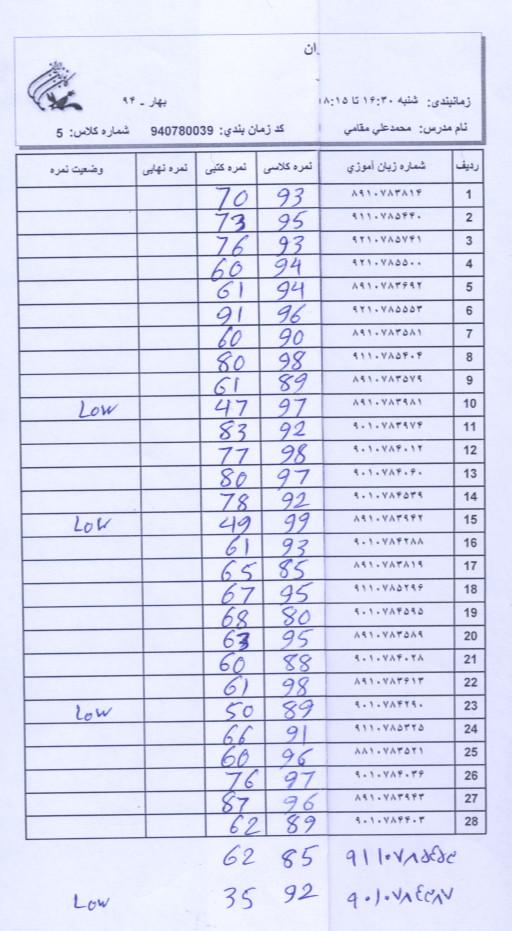 ان
زمانبندی: شنبه ۱۶:۳۰ تا ۱۸:۱۵ بهار - ۹۴
نام مدرس: محمدعلي مقامي کد زمان بندي: 940780039 شماره کلاس: 5
ردیف شماره زبان آموزي نمره کلاسی نمره کتبی نمره نهایی وضعیت نمره
1 ۸۹۱۰۷۸۳۸۱۴ 93 70
2 ۹۱۱۰۷۸۵۴۴۰ 95 73
3 ۹۲۱۰۷۸۵۷۴۱ 93 76
4 ۹۲۱۰۷۸۵۵۰۰ 94 60
5 ۸۹۱۰۷۸۳۶۹۲ 94 61
6 ۹۲۱۰۷۸۵۵۵۳ 96 91
7 ۸۹۱۰۷۸۳۵۸۱ 90 60
8 ۹۱۱۰۷۸۵۴۰۴ 98 80
9 ۸۹۱۰۷۸۳۵۷۹ 89 61
10 ۸۹۱۰۷۸۳۹۸۱ 97 47 Low
11 ۹۰۱۰۷۸۳۹۷۴ 92 83
12 ۹۰۱۰۷۸۴۰۱۲ 98 77
13 ۹۰۱۰۷۸۴۰۶۰ 97 80
14 ۹۰۱۰۷۸۴۵۳۹ 92 78
15 ۸۹۱۰۷۸۳۹۴۲ 99 49 Low
16 ۹۰۱۰۷۸۴۲۸۸ 93 61
17 ۸۹۱۰۷۸۳۸۱۹ 85 65
18 ۹۱۱۰۷۸۵۲۹۶ 95 67
19 ۹۰۱۰۷۸۴۵۹۵ 80 68
20 ۸۹۱۰۷۸۳۵۸۹ 95 63
21 ۹۰۱۰۷۸۴۰۲۸ 88 60
22 ۸۹۱۰۷۸۳۶۱۳ 98 61
23 ۹۰۱۰۷۸۴۲۹۰ 89 50 Low
24 ۹۱۱۰۷۸۵۳۲۵ 91 66
25 ۸۸۱۰۷۸۳۵۲۱ 96 60
26 ۹۰۱۰۷۸۴۰۳۶ 97 76
27 ۸۹۱۰۷۸۳۹۴۳ 96 87
28 ۹۰۱۰۷۸۴۴۰۳ 89 62
85 62
92 35 Low